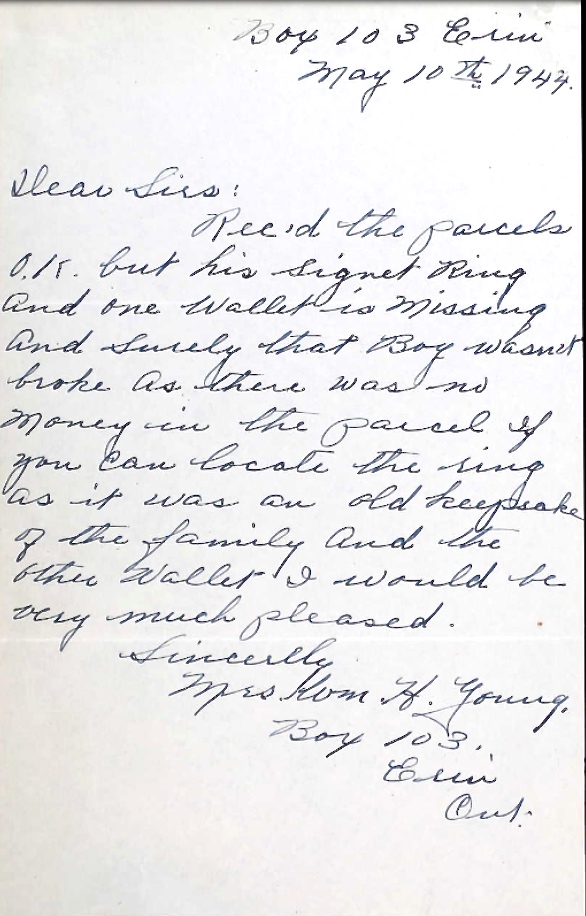 Box 103 Erin
May 10th 1944.
Dear Sirs:
Rec'd the parcels
O.K. but his Signet Ring
And one Wallet is Missing
And Surely that Boy wasnt
broke As there was no
Money in the parcel If
you Can locate the ring
as it was an old keepsake
of the family And the
other Wallet I would be
very much pleased.
Sincerlly
Mrs Wm H. Young.
Box 103.
Erin
Ont.